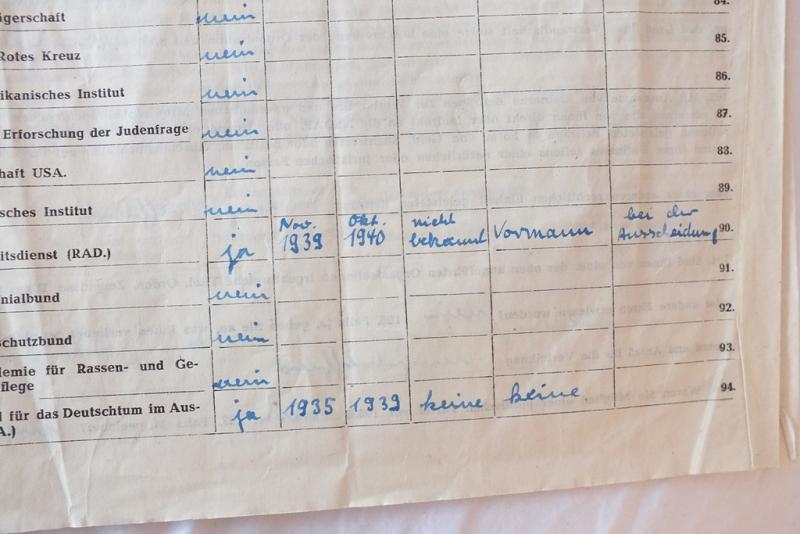 ägerschaft nein 84.
Rotes Kreuz nein 85.
ikanisches Institut nein 86.
Erforschung der Judenfrage nein 87.
haft USA. nein 88.
sches Institut nein 89.
itsdienst (RAD.) ja Nov. 1939 Okt. 1940 nicht bekannt Vormann bei der Ausscheidung 90.
nialbund nein 91.
schutzbund nein 92.
lemie für Rassen- und Ge-
pflege nein 93.
l für das Deutschtum im Aus-
A.) ja 1935 1939 keine keine 94.